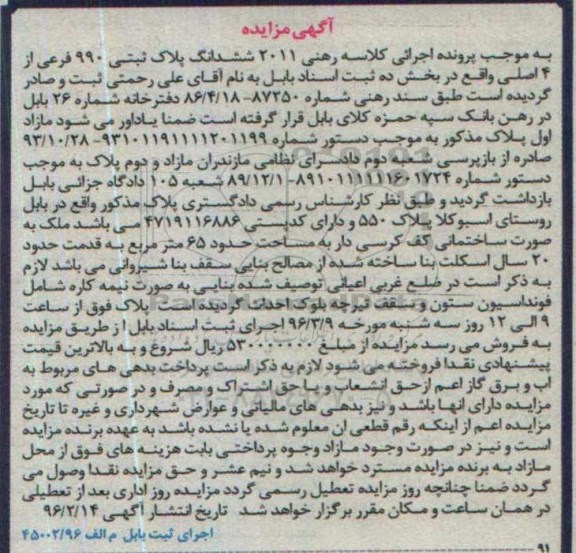 آگهی مزایده
به موجب پرونده اجرائی کلاسه رهنی ۲۰۱۱ ششدانگ پلاک ثبتی ۹۹۰ فرعی از
۴ اصلی واقع در بخش ده ثبت اسناد بابل به نام آقای علی رحمتی ثبت و صادر
گردیده است طبق سند رهنی شماره ۸۷۲۵۰-۸۶/۴/۱۸ دفترخانه شماره ۲۶ بابل
در رهن بانک سپه حمزه کلای بابل قرار گرفته است ضمنا یاداور می شود مازاد
اول پلاک مذکور به موجب دستور شماره ۹۳۱۰۱۱۹۱۱۱۱۲۰۱۱۹۹-۹۳/۱۰/۲۸
صادره از بازپرسی شعبه دوم دادسرای نظامی مازندران مازاد و دوم پلاک به موجب
دستور شماره ۸۹۱۰۱۱۱۱۱۱۶۰۱۷۲۴-۸۹/۱۲/۱ شعبه ۱۰۵ دادگاه جزائی بابل
بازداشت گردید و طبق نظر کارشناس رسمی دادگستری پلاک مذکور واقع در بابل
روستای اسبوکلا پلاک ۵۵۰ و دارای کدپستی ۴۷۱۹۱۱۶۸۸۶ می باشد ملک به
صورت ساختمانی کف کرسی دار به مساحت حدود ۶۵ متر مربع به قدمت حدود
۲۰ سال اسکلت بنا ساخته شده از مصالح بنایی سقف بنا شیروانی می باشد لازم
به ذکر است در ضلع غربی اعیانی توصیف شده بنایی به صورت نیمه کاره شامل
فونداسیون ستون و سقف تیرچه بلوک احداث گردیده است پلاک فوق از ساعت
۹ الی ۱۲ روز سه شنبه مورخه ۹۶/۳/۹ اجرای ثبت اسناد بابل از طریق مزایده
به فروش می رسد مزایده از مبلغ ۵۳۰۰۰۰۰۰۰ ریال شروع و به بالاترین قیمت
پیشنهادی نقدا فروخته می شود لازم به ذکر است پرداخت بدهی های مربوط به
اب و برق گاز اعم از حق انشعاب و یا حق اشتراک و مصرف و در صورتی که مورد
مزایده دارای انها باشد و نیز بدهی های مالیاتی و عوارض شهرداری و غیره تا تاریخ
مزایده اعم از اینکه رقم قطعی ان معلوم شده یا نشده باشد به عهده برنده مزایده
است و نیز در صورت وجود مازاد وجوه پرداختی بابت هزینه های فوق از محل
مازاد به برنده مزایده مسترد خواهد شد و نیم عشر و حق مزایده نقدا وصول می
گردد ضمنا چنانچه روز مزایده تعطیل رسمی گردد مزایده روز اداری بعد از تعطیلی
در همان ساعت و مکان مقرر برگزار خواهد شد تاریخ انتشار آگهی ۹۶/۲/۱۴
اجرای ثبت بابل م الف ۴۵۰۰۲/۹۶
۹۱